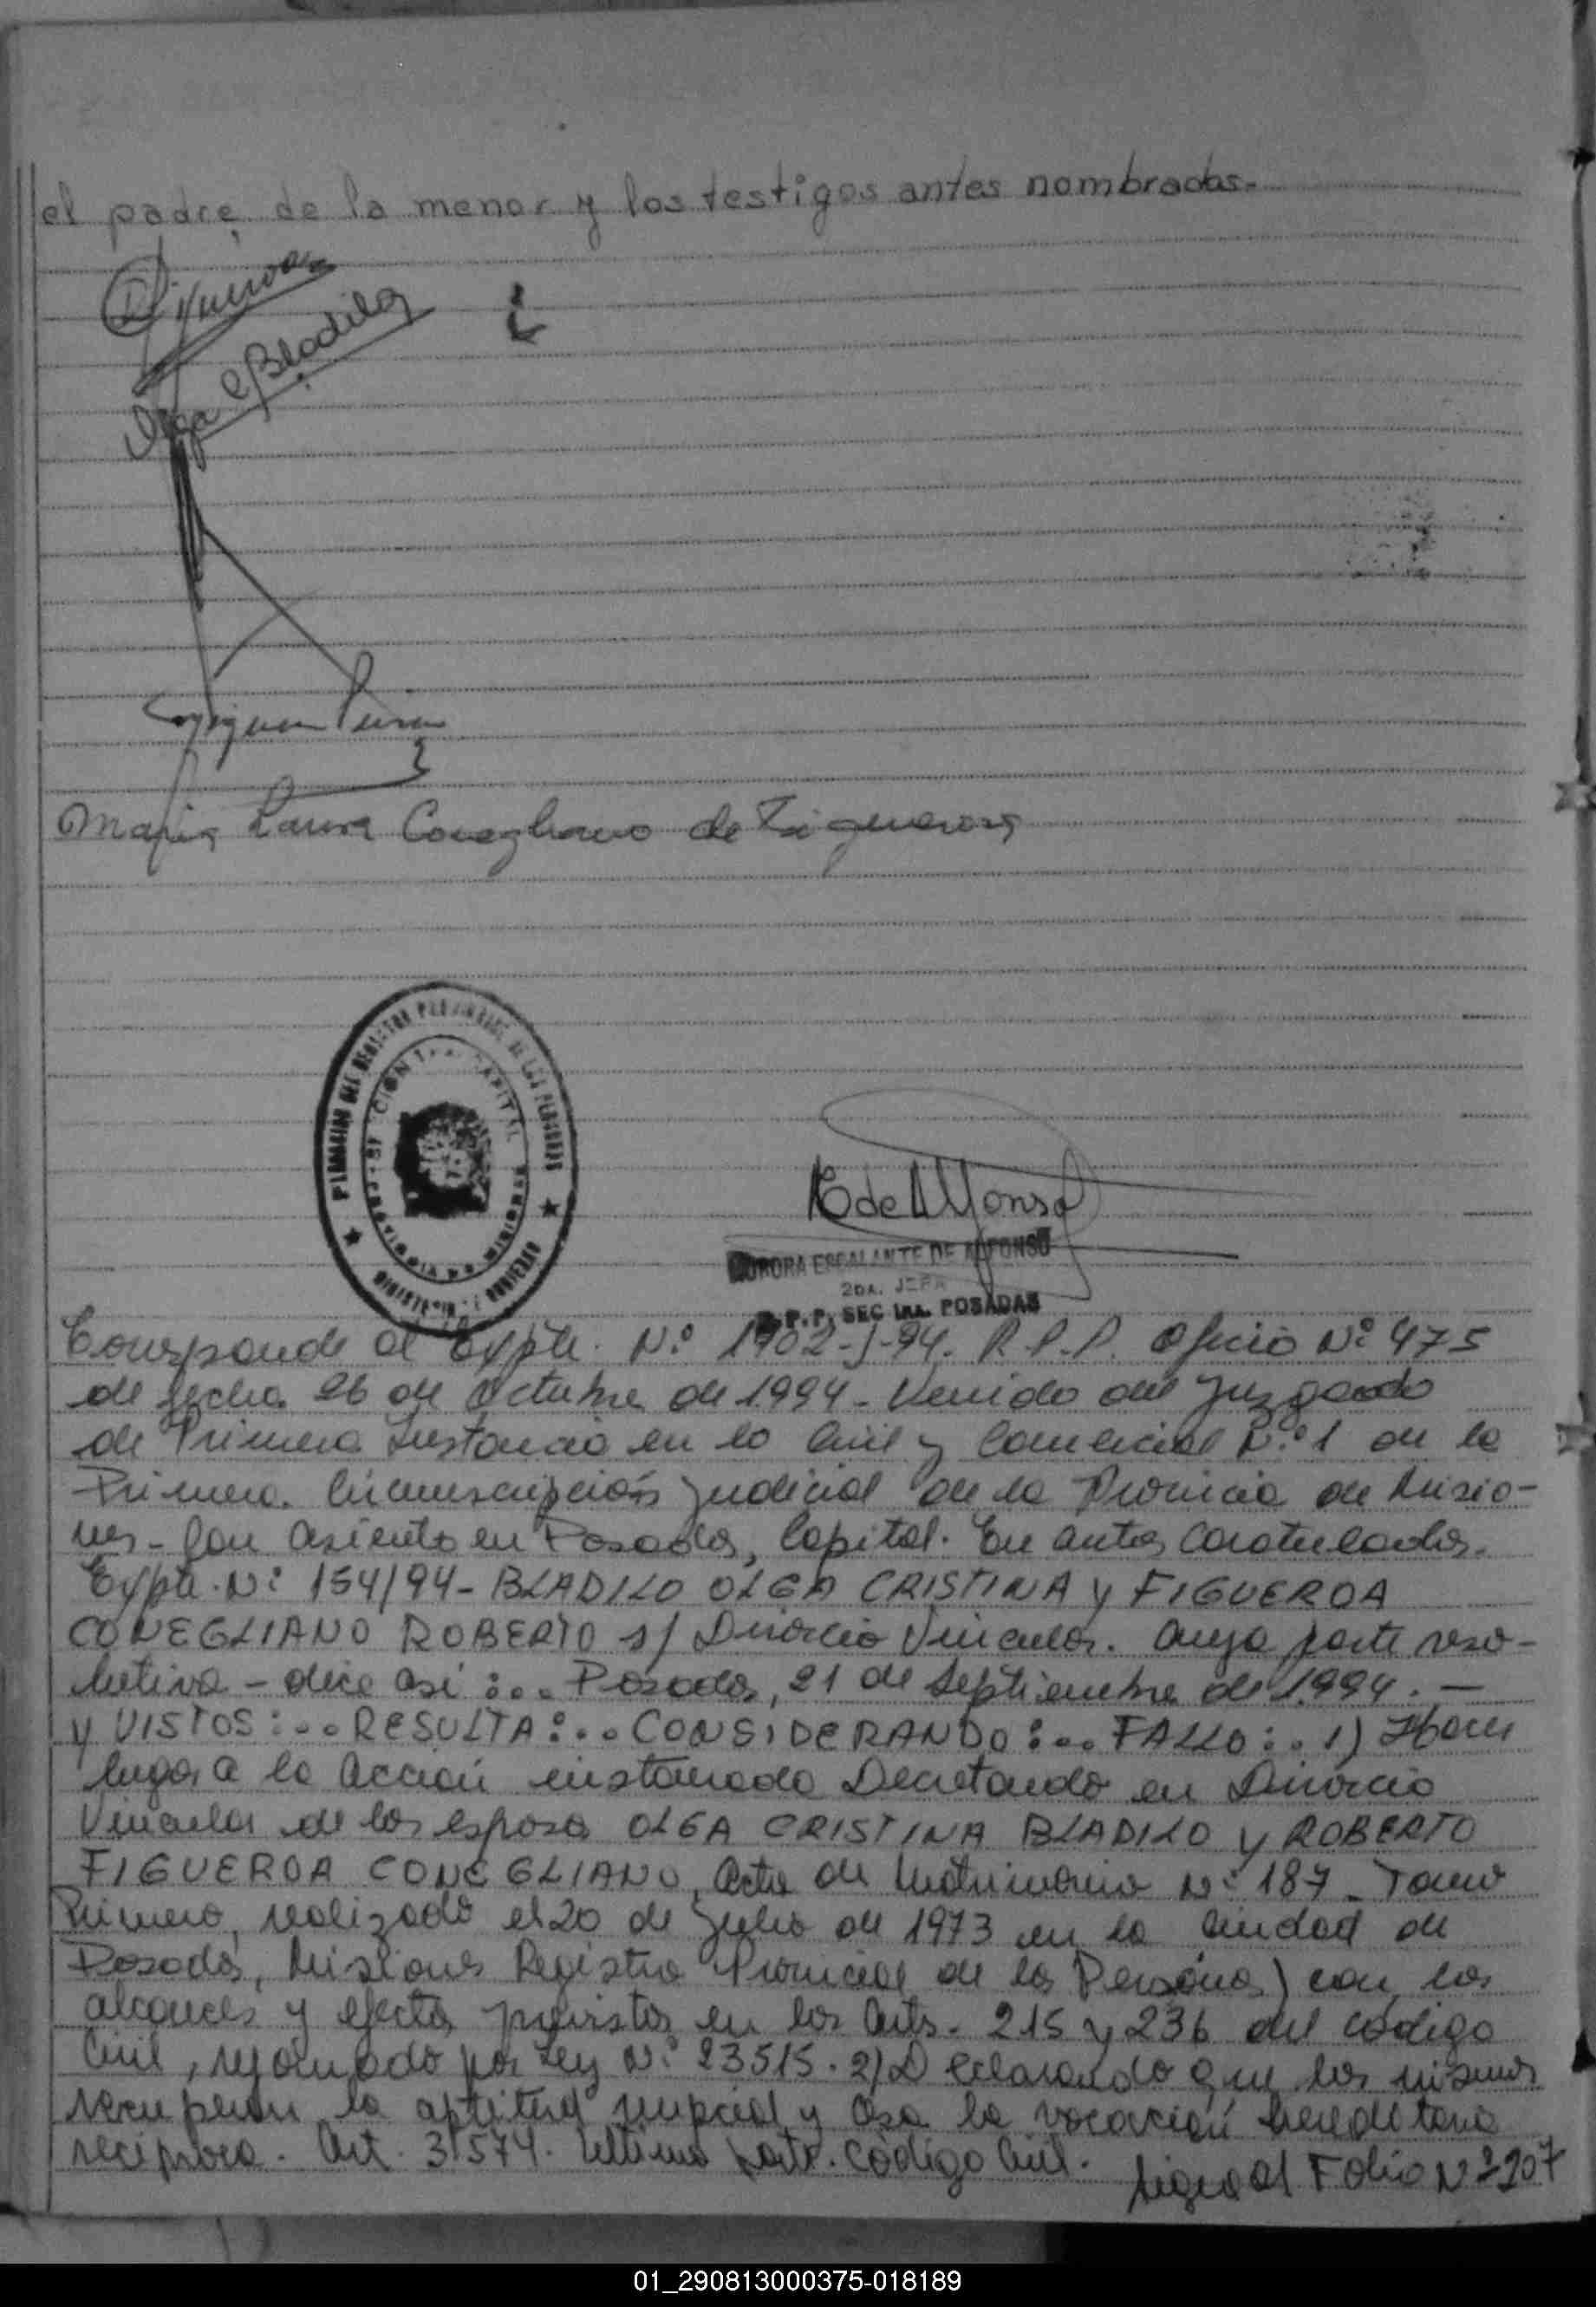 el padre de la menor y los testigos antes nombrados.-
Olga C Bladilo
Maria Laura Conegliano de Figueroa
CAPITAL
E de Alfonso
AURORA ESCALANTE DE ALFONSO
2DA. JEFA
R.P.P. SEC 1RA. POSADAS
Corresponde al Expte. N.º 1902-J-94. R.P.P. Oficio N.º 475
de fecha 26 de Octubre de 1994 - Venido del Juzgado
de Primera Instancia en lo Civil y Comercial N.º 1 de la
Primera. Circunscripción Judicial de la Provincia de Misio-
nes - Con asiento en Posadas, Capital. En autos Caratulados.
Expte. N.º 154/94 - BLADILO OLGA CRISTINA y FIGUEROA
CONEGLIANO ROBERTO s/ Divorcio Vincular. Cuya parte reso-
lutiva - dice así :... Posadas, 21 de Septiembre de 1994. -
Y VISTOS:... RESULTA:... CONSIDERANDO:... FALLO:.. 1) Hacer
lugar a la Acción instaurada Decretando en Divorcio
Vincular de los esposos OLGA CRISTINA BLADILO y ROBERTO
FIGUEROA CONEGLIANO, Acta de Matrimonio N.º 187 - Tomo
Primero, realizado el 20 de Julio de 1973 en la Ciudad de
Posadas, Misiones Registro Provincial de las Personas) con los
alcances y efectos previstos en los Arts. 215 y 236 del Código
Civil, reformado por Ley N.º 23515. 2) Declarando que los mismos
recuperan la aptitud nupcial y cesa la vocación hereditaria
recíproca. Art. 3.574. Ultima parte. Código Civil. Sigue al Folio Nº 207
01_290813000375-018189